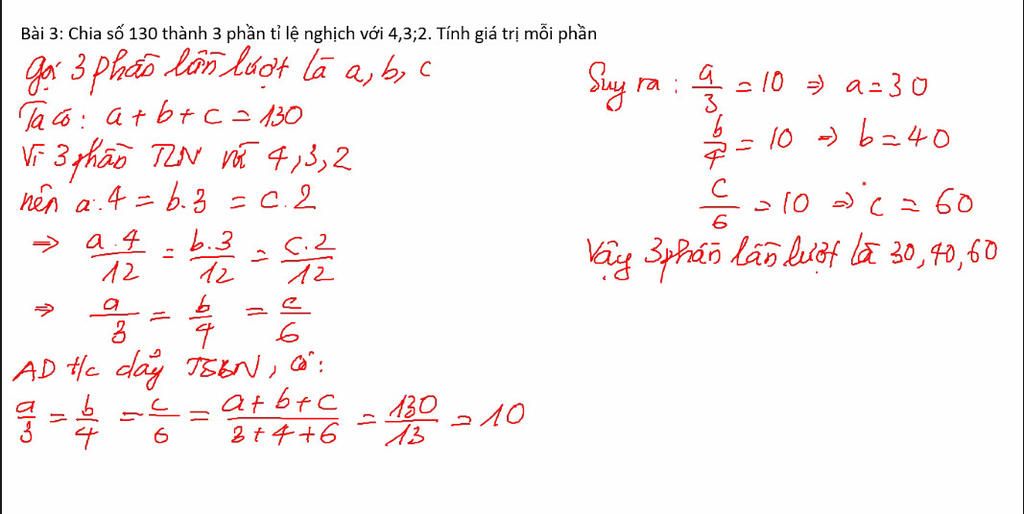 Bài 3: Chia số 130 thành 3 phần tỉ lệ nghịch với 4,3;2. Tính giá trị mỗi phần
Gọi 3 phần lần lượt là a, b, c
Ta có: a + b + c = 130
Vì 3 phần TLN với 4, 3, 2
nên a.4 = b.3 = c.2
⇒ a.4/12 = b.3/12 = c.2/12
⇒ a/3 = b/4 = c/6
AD t/c dãy TSBN, có:
a/3 = b/4 = c/6 = a+b+c/3+4+6 = 130/13 = 10
Suy ra: a/3 = 10 ⇒ a = 30
b/4 = 10 ⇒ b = 40
c/6 = 10 ⇒ c = 60
Vậy 3 phần lần lượt là 30, 40, 60